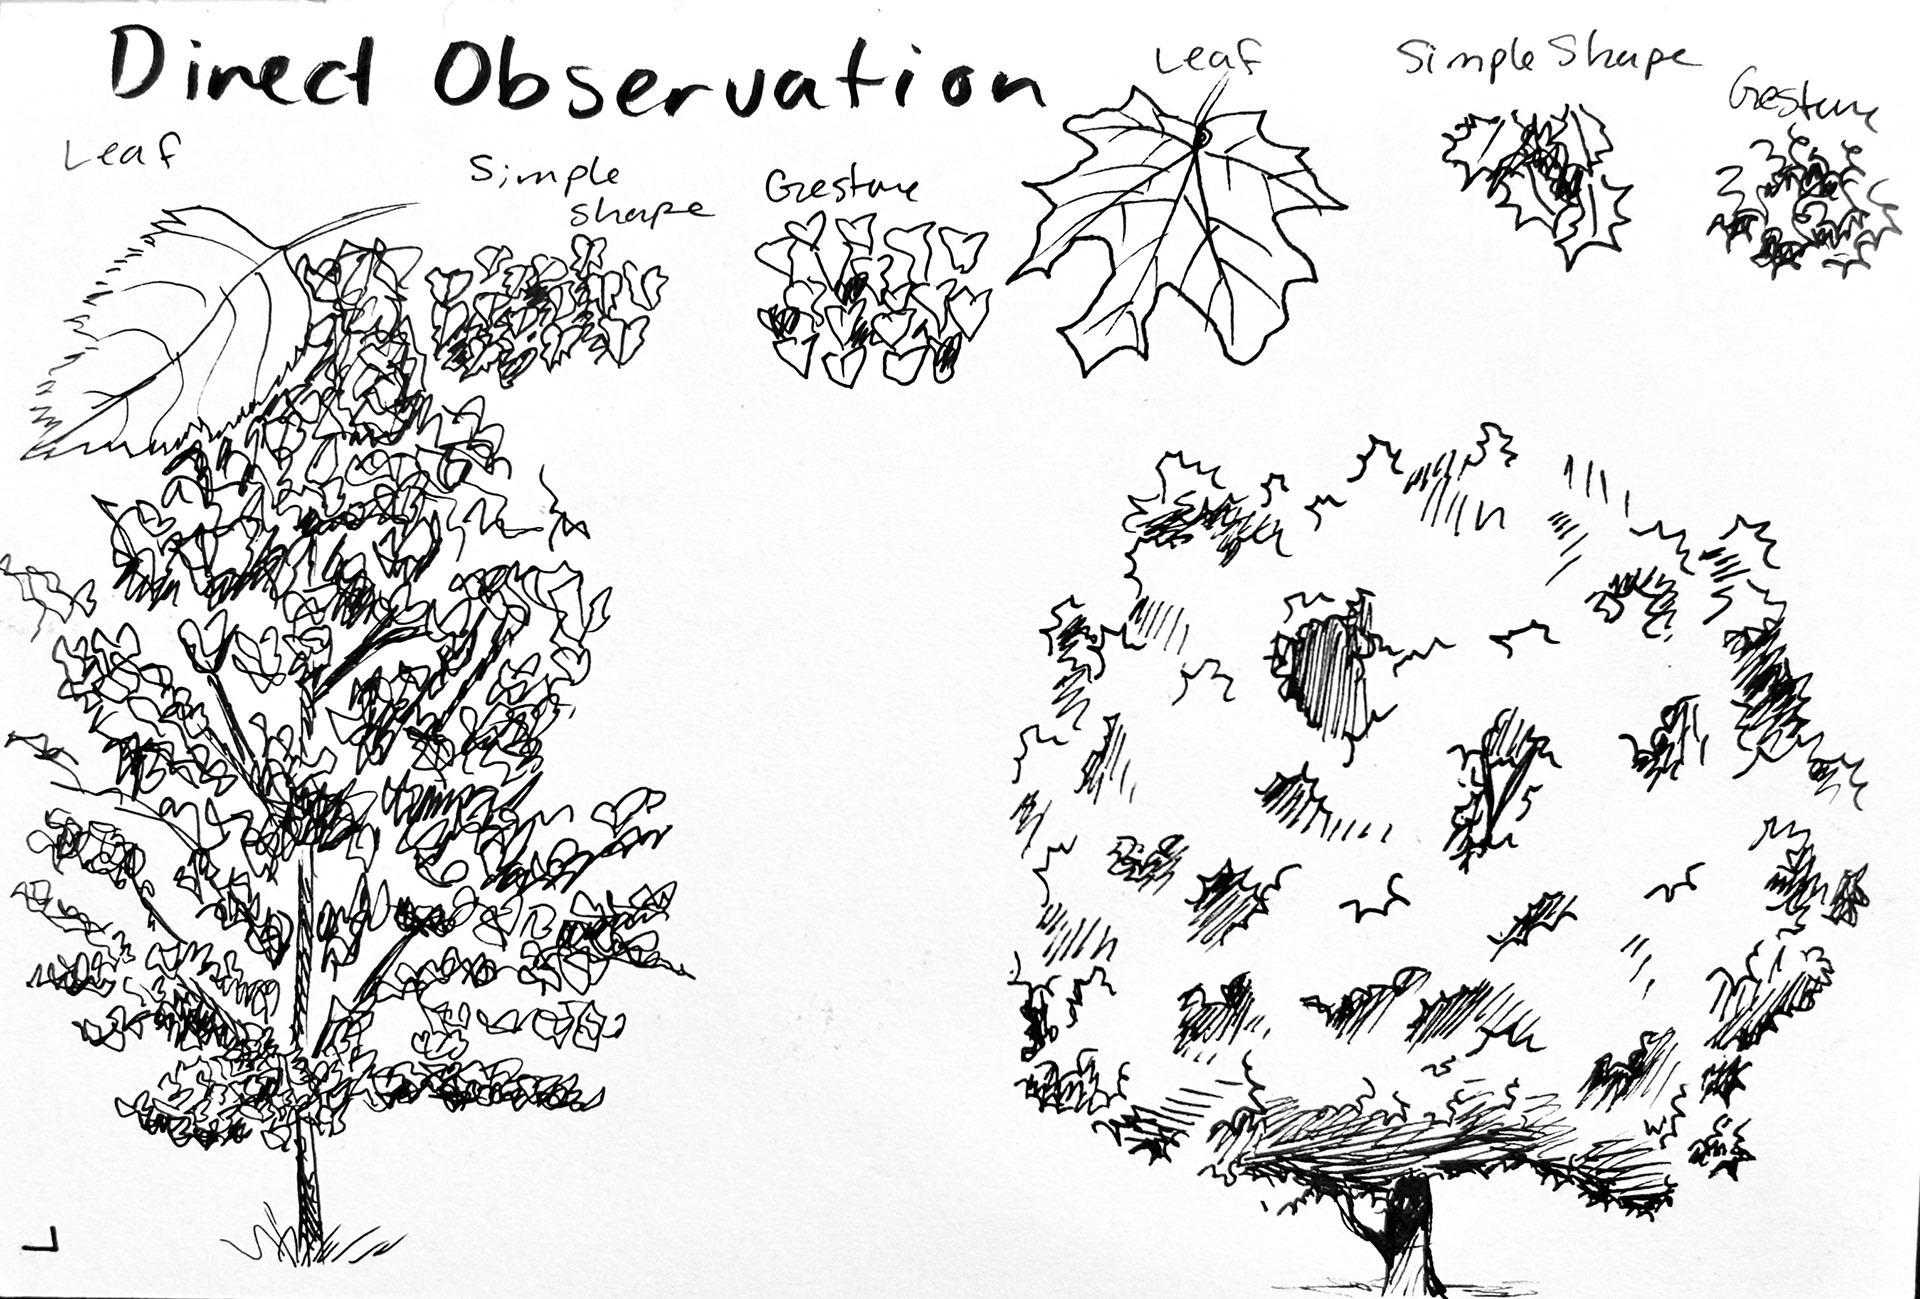 Direct Observation
Leaf
Simple
shape
Gesture
Leaf
Simple Shape
Gesture